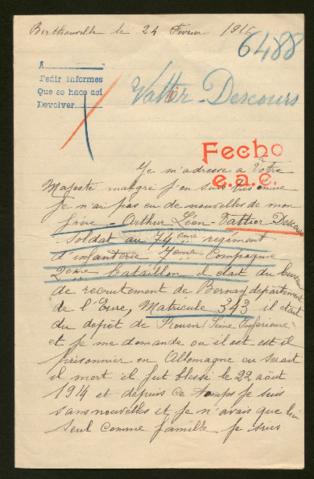 Berthouville le 24 Février
6488
A
Pedir informes
Que se hace así
Devolver
Vattier-Descours
Fecho
e.a.c.
Je m'adresse a Votre
Majesté malgré j'en suis
je n'ai pas eu de nouvelles de mon
frère Arthur Léon Vattier Descours
Soldat au 74eme regiment
d'infanterie 7eme Compagnie
2eme bataillon il était du bureau
de recrutement de Bernay département
de l'Eure, Matricule 343 il était
du dépôt de Rouen (Seine Inferieure)
et je me demande ou il est est il
prisonnier en Allemagne ou serait
il mort il fut blessé le 22 août
1914 et depuis ce temps je suis
sans nouvelles et je n'avais que lui
seul comme famille je suis